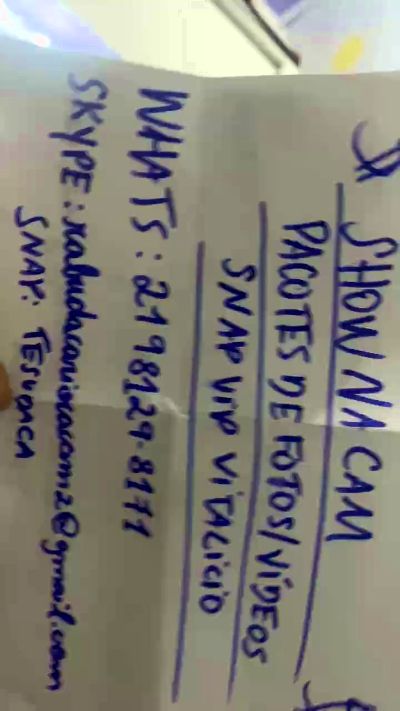 SHOW NA CAM
PACOTES DE FOTOS/VÍDEOS
SNAP VIP VITALICIO
WHATS: 2198129-8171
SKYPE:
SNAP: